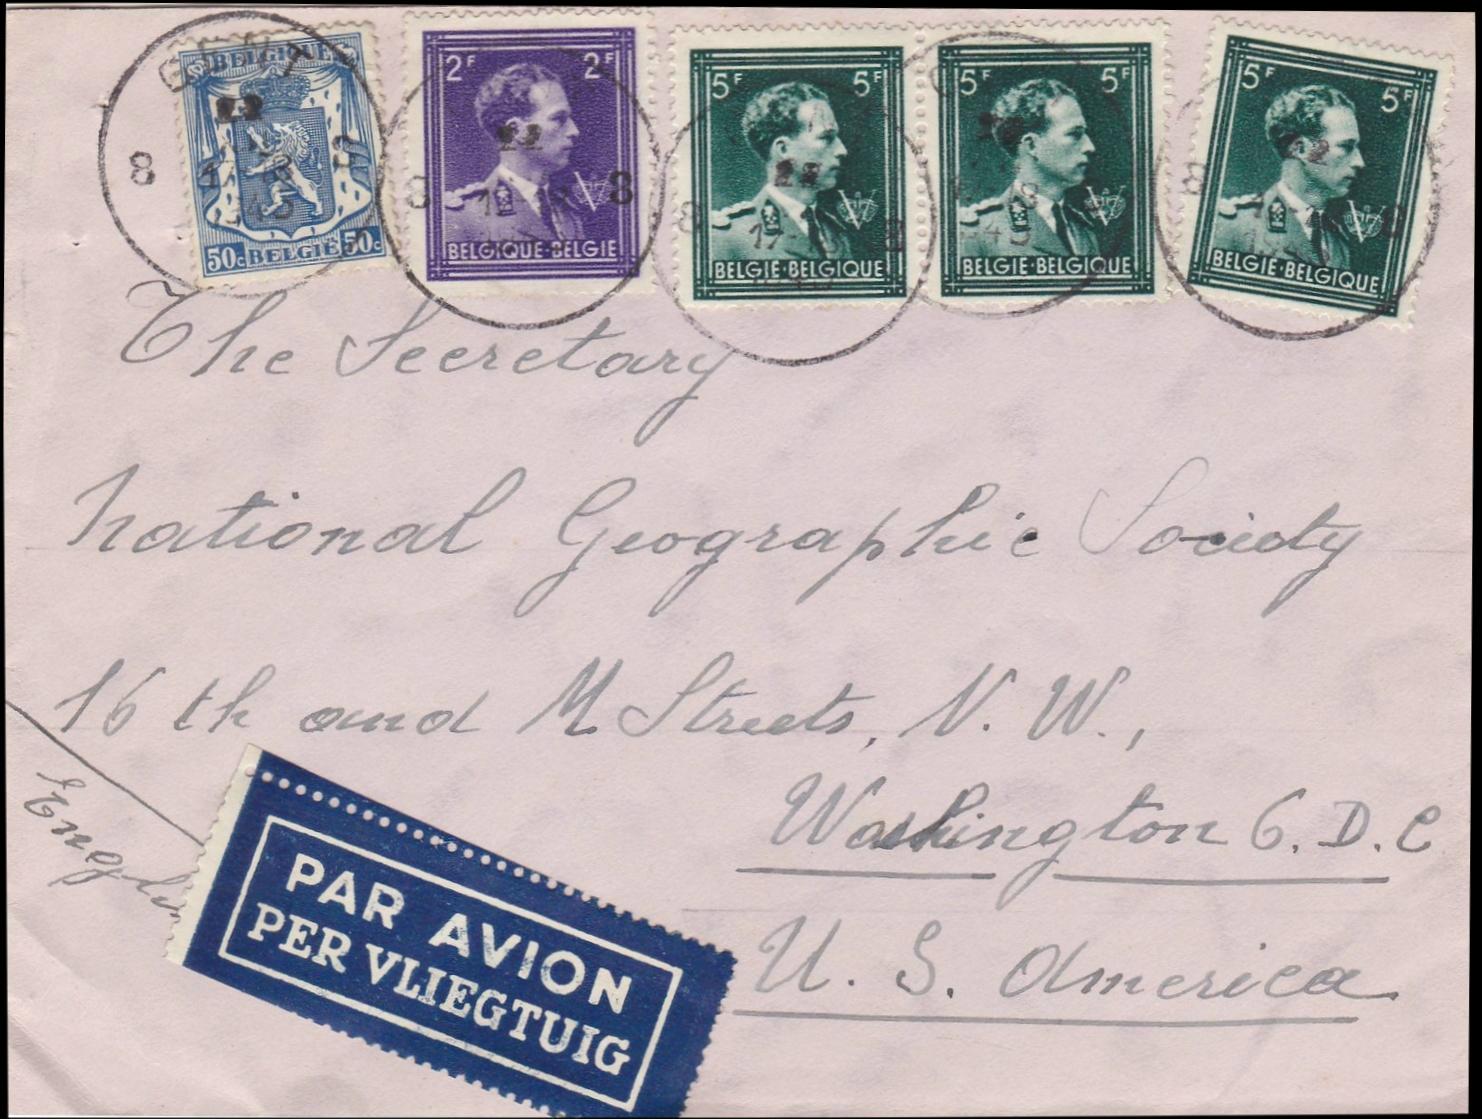 BELGIQUE
50c BELGIE 50c
GENT
8
1945
2F 2F
BELGIQUE·BELGIE
8 8
5F 5F
BELGIE·BELGIQUE
5F 5F
BELGIE·BELGIQUE
5F 5F
BELGIE·BELGIQUE
The Secretary
National Geographic Society
16 th and M Streets, N. W.,
Washington 6. D. C
U. S. America
PAR AVION
PER VLIEGTUIG